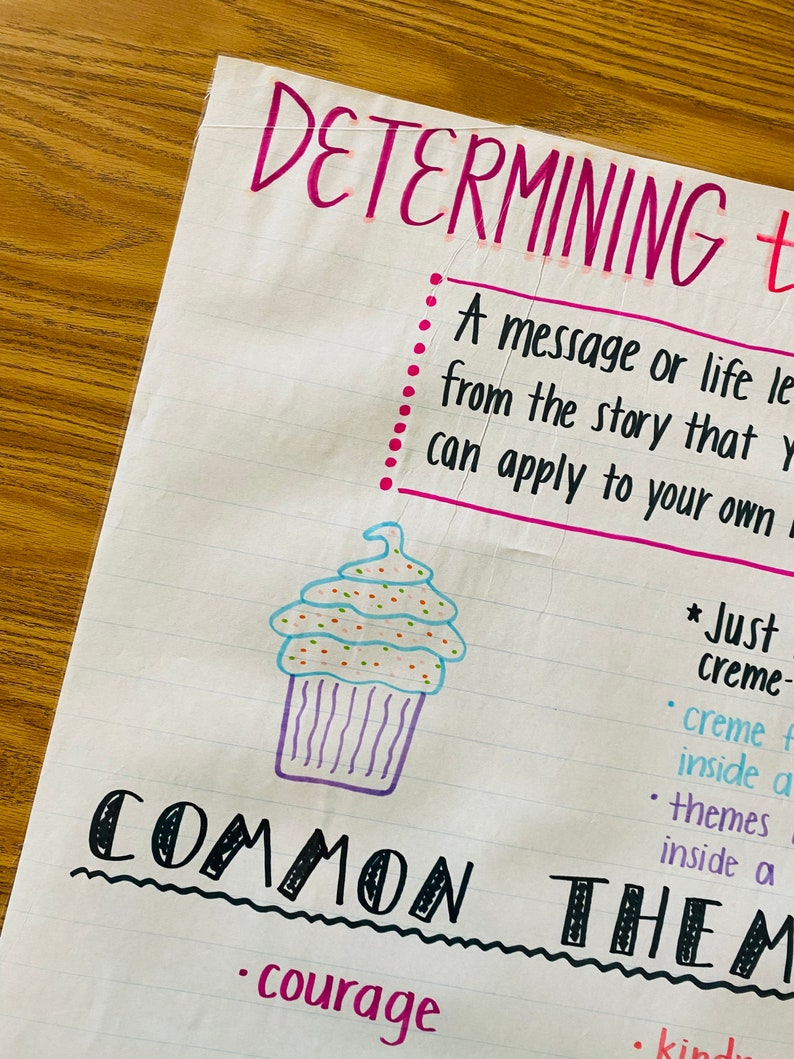 DETERMINING t
A message or life le
from the story that y
can apply to your own
*Just
creme-
• creme f
inside a
• themes
inside a
COMMON THEM
• courage
• kindn